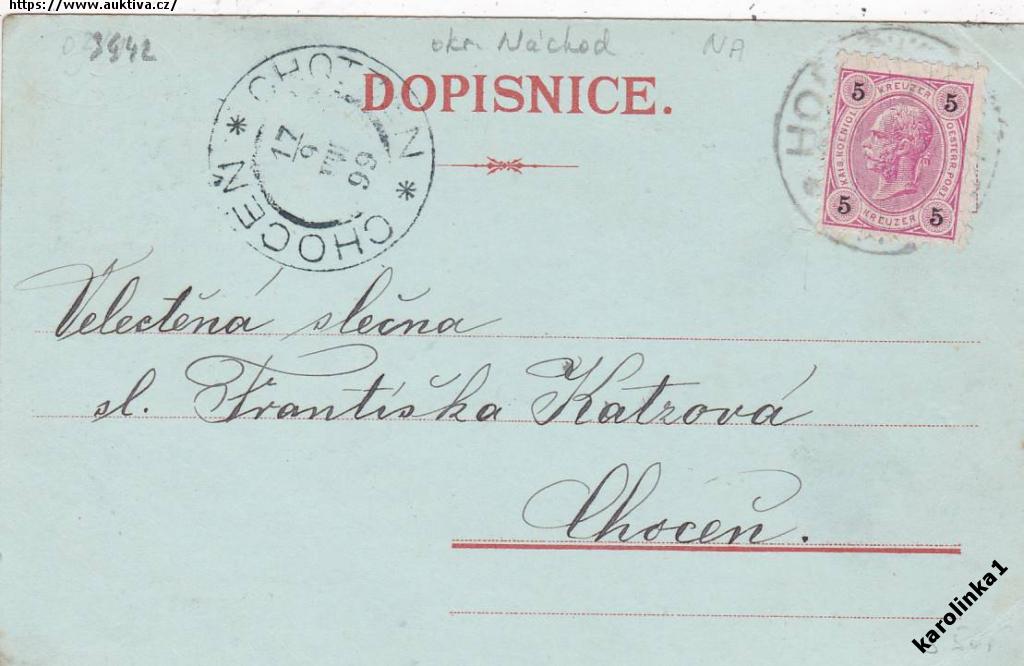 https://www.auktiva.cz/
3942
okr. Náchod
NA
DOPISNICE.
CHOTZEN
* CHOCEŇ *
17
6
VII
99
HO
5 KREUZER 5
KAIS. KOENIGL. OESTERR. POST
5 KREUZER 5
Velectěná slečna
sl. Františka Katzová
Choceň.
karolinka1